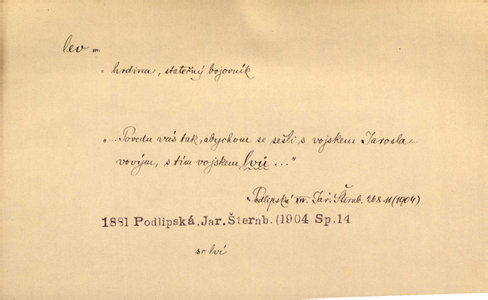 lev m.
= hrdina, statečný bojovník
„...Povedu vás tak, abychom se sešli s vojskem Jarosla
vovým, s tím vojskem lvů..."
Podlipská XIV. Jar. Šternb. 268 (1904)
1881 Podlipská, Jar. Šternb. (1904 Sp.14
sr lví